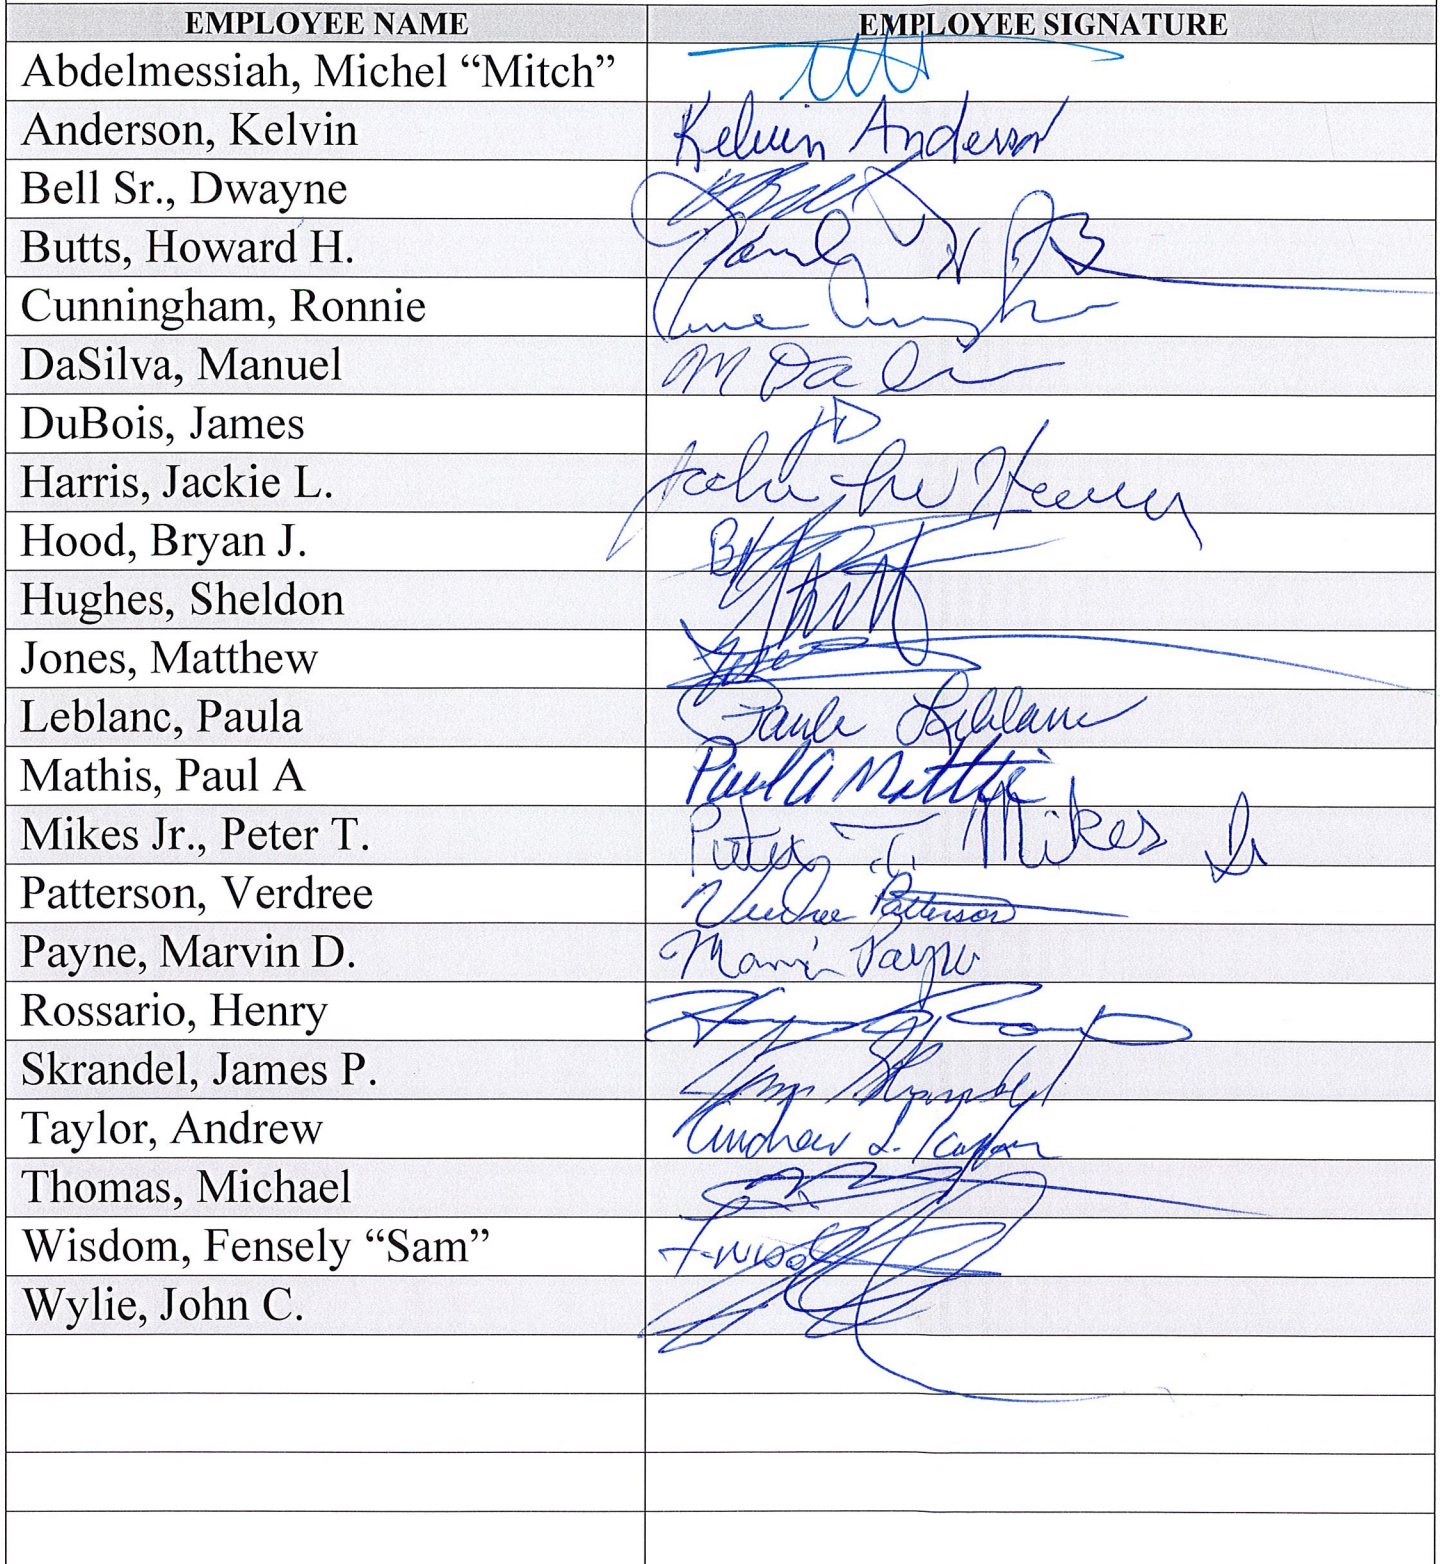 EMPLOYEE NAME EMPLOYEE SIGNATURE
Abdelmessiah, Michel “Mitch”
Anderson, Kelvin Kelvin Anderson
Bell Sr., Dwayne
Butts, Howard H.
Cunningham, Ronnie
DaSilva, Manuel
DuBois, James JD
Harris, Jackie L.
Hood, Bryan J.
Hughes, Sheldon
Jones, Matthew
Leblanc, Paula Paula Leblanc
Mathis, Paul A Paul A Mathis
Mikes Jr., Peter T. Peter T. Mikes Jr
Patterson, Verdree Verdree Patterson
Payne, Marvin D. Marvin Payne
Rossario, Henry
Skrandel, James P.
Taylor, Andrew Andrew
Thomas, Michael
Wisdom, Fensely “Sam”
Wylie, John C.